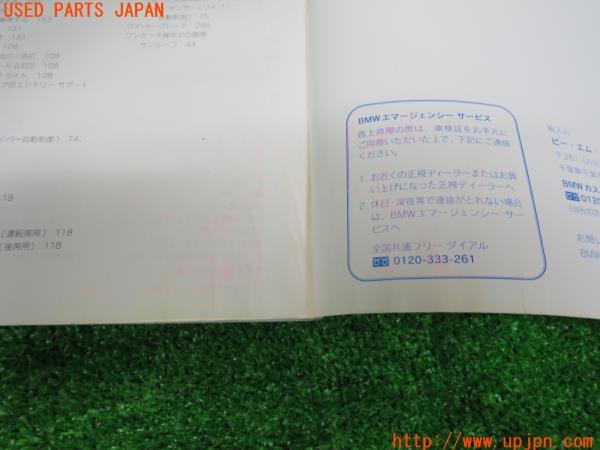 USED PARTS JAPAN
131
131
センサー(ワイパー
自動制御) 76
ワイパー ブレード 246
ワンタッチ操作での開閉
サンルーフ 44
108
108
ライト 108
エントリー サポート
イパー自動制御) 74,
118
(運転席用) 118
(後席用) 118
BMWエマージェンシー サービス
路上故障の際は、車検証をお手元に
ご用意いただいた上で、下記にご連絡
ください。
1. お近くの正規ディーラーまたはお買
い上げになった正規ディーラーへ
2. 休日・深夜等で連絡がとれない場合
は、BMWエマージェンシー サー
ビスへ
全国共通フリー ダイアル
0120-333-261
輸入元
ビー・エム・
〒261-002
千葉県千葉
BMWカス
0120
お問い
BMW
http://www.upjpn.com/